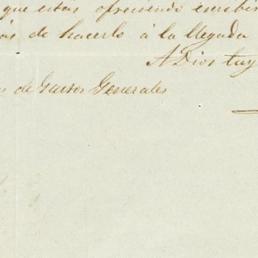 que estás ofreciendo escribir
de hacerlo á la llegada
A Dios tuy
de Gastos Generales